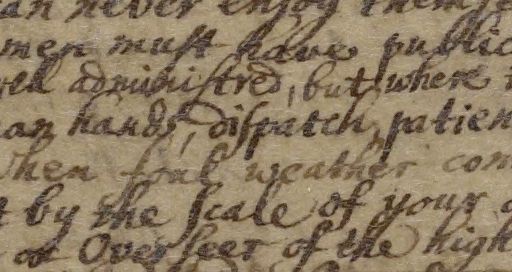 an never enjoy themse
men must have public
red administred, but where
an hands, dispatch, patien
when foul weather com
t by the scale of your
or Overseer of the high